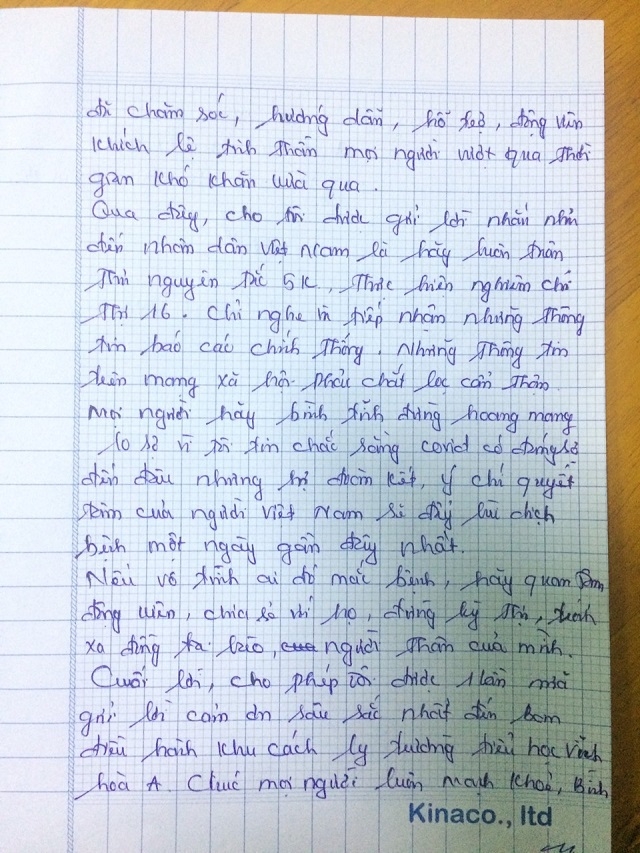 đã chăm sóc, hướng dẫn, hỗ trợ, động viên
khích lệ tinh thần mọi người vượt qua thời
gian khó khăn vừa qua.
Qua đây, cho tôi được gửi lời nhắn nhủ
đến nhân dân Việt Nam là hãy luôn tuân
thủ nguyên tắc 5K, thực hiện nghiêm chỉ
thị 16. Chỉ nghe và tiếp nhận những thông
tin báo các chính thống. Những thông tin
trên mạng xã hội phải chắt lọc cẩn thận.
Mọi người hãy bình tĩnh đừng hoang mang
lo sợ vì tôi tin chắc rằng covid có đáng sợ
đến đâu nhưng sự đoàn kết, ý chí quyết
tâm của người Việt Nam sẽ đẩy lùi dịch
bệnh một ngày gần đây nhất.
Nếu vô tình ai đó mắc bệnh, hãy quan tâm
động viên, chia sẻ với họ, đừng kỳ thị, tránh
xa đồng bào, người thân của mình.
Cuối lời, cho phép tôi được 1 lần nữa
gửi lời cảm ơn sâu sắc nhất đến ban
điều hành khu cách ly trường tiểu học Vĩnh
hoà A. Chúc mọi người luôn mạnh khoẻ, Bình
Kinaco., ltd